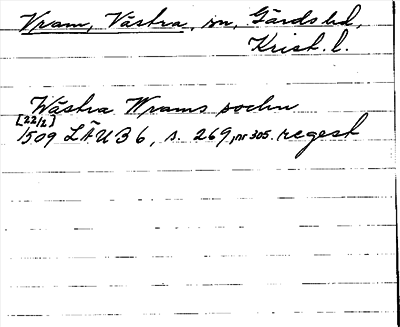 Vram, Västra, sn, Gärds hd,
Krist. l.
Wästra Wrams sochn
[22/2]
1509 LÄUB 6, s. 269, nr 305. regest